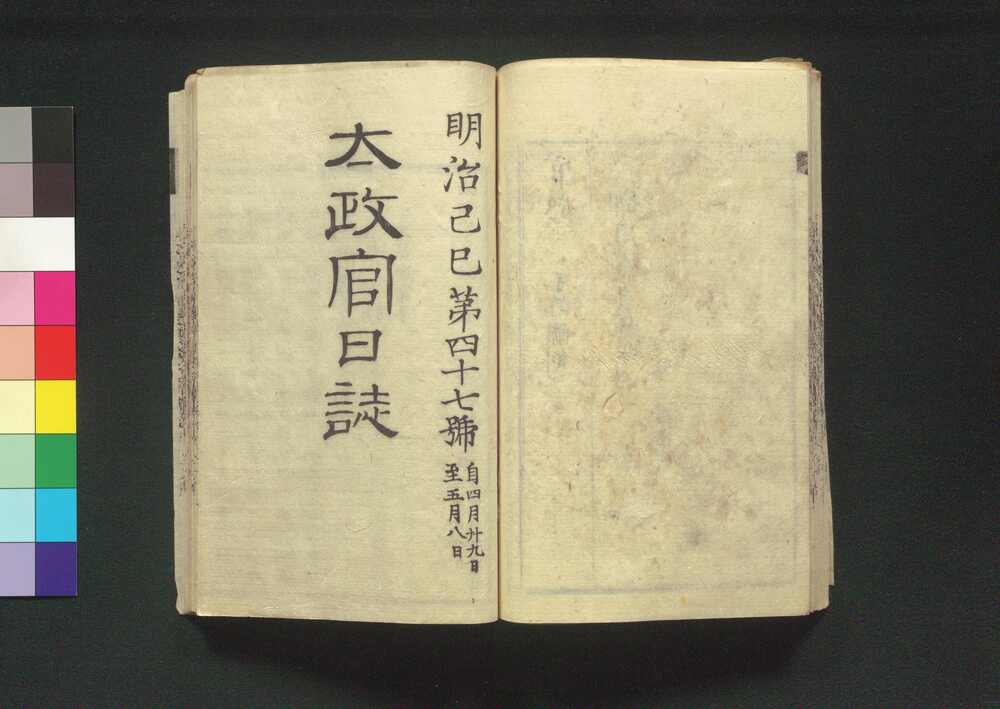 明治己巳第四十七號
自四月廿九日
至五月八日
太政官日誌